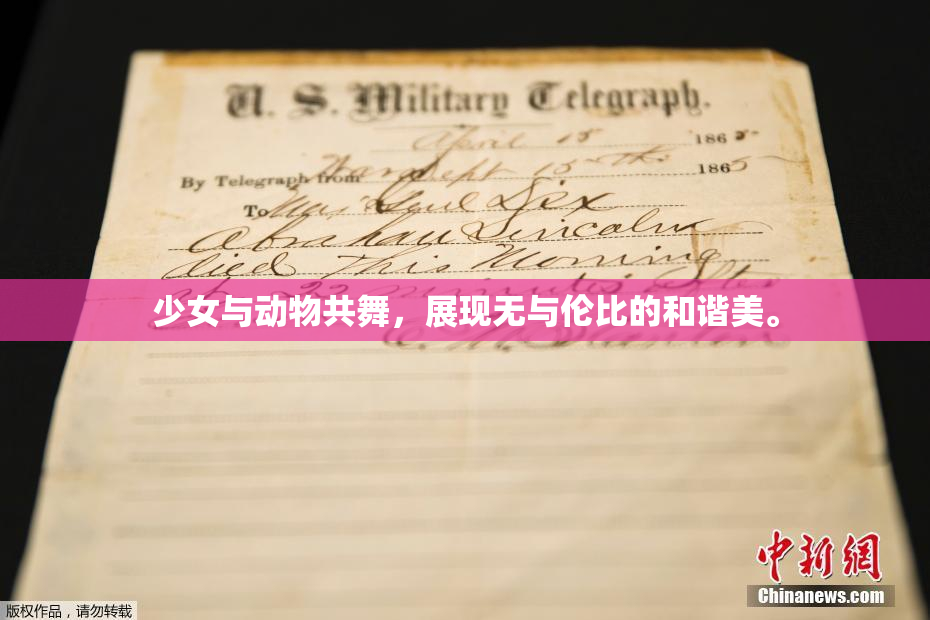 U. S. Military Telegraph.
April 15 1865
By Telegraph from War Dept 15th 1865
To Maj Genl Dix
Abraham Lincoln
died This Morning
at 22 minutes after
少女与动物共舞，展现无与伦比的和谐美。
E. M. Stanton
中新网
Chinanews.com
版权作品，请勿转载